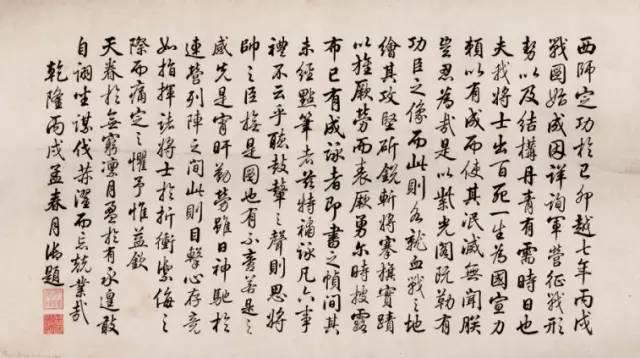 西師定功於己卯越七年丙戌
戰圖始成因詳詢軍營征戰形
勢以及結構丹青有需時日也
夫我將士出百死一生為國宣力
賴以有成而使其泯滅無聞朕
豈忍為哉是以紫光閣既勒有
功臣之像而此則各就血戰之地
繪其攻堅斫銳斬將搴旗實蹟
以旌厥勞而表厥勇爾時披露
布已有成詠者即書之幀間其
未經點筆者茲特補詠凡六事
禮不云乎聽鼓鼙之聲則思將
帥之臣於是圖也有不啻若是之
感先是宵旰勤勞雖日神馳於
連營列陣之間此則目擊心存竟
如指揮諸將士於折衝禦侮之
際而痛定之懼予惟益欽
天眷於無窮凜月盈於有永遑敢
自詡坐謀伐濯而忘兢業哉
乾隆丙戌孟春月御題